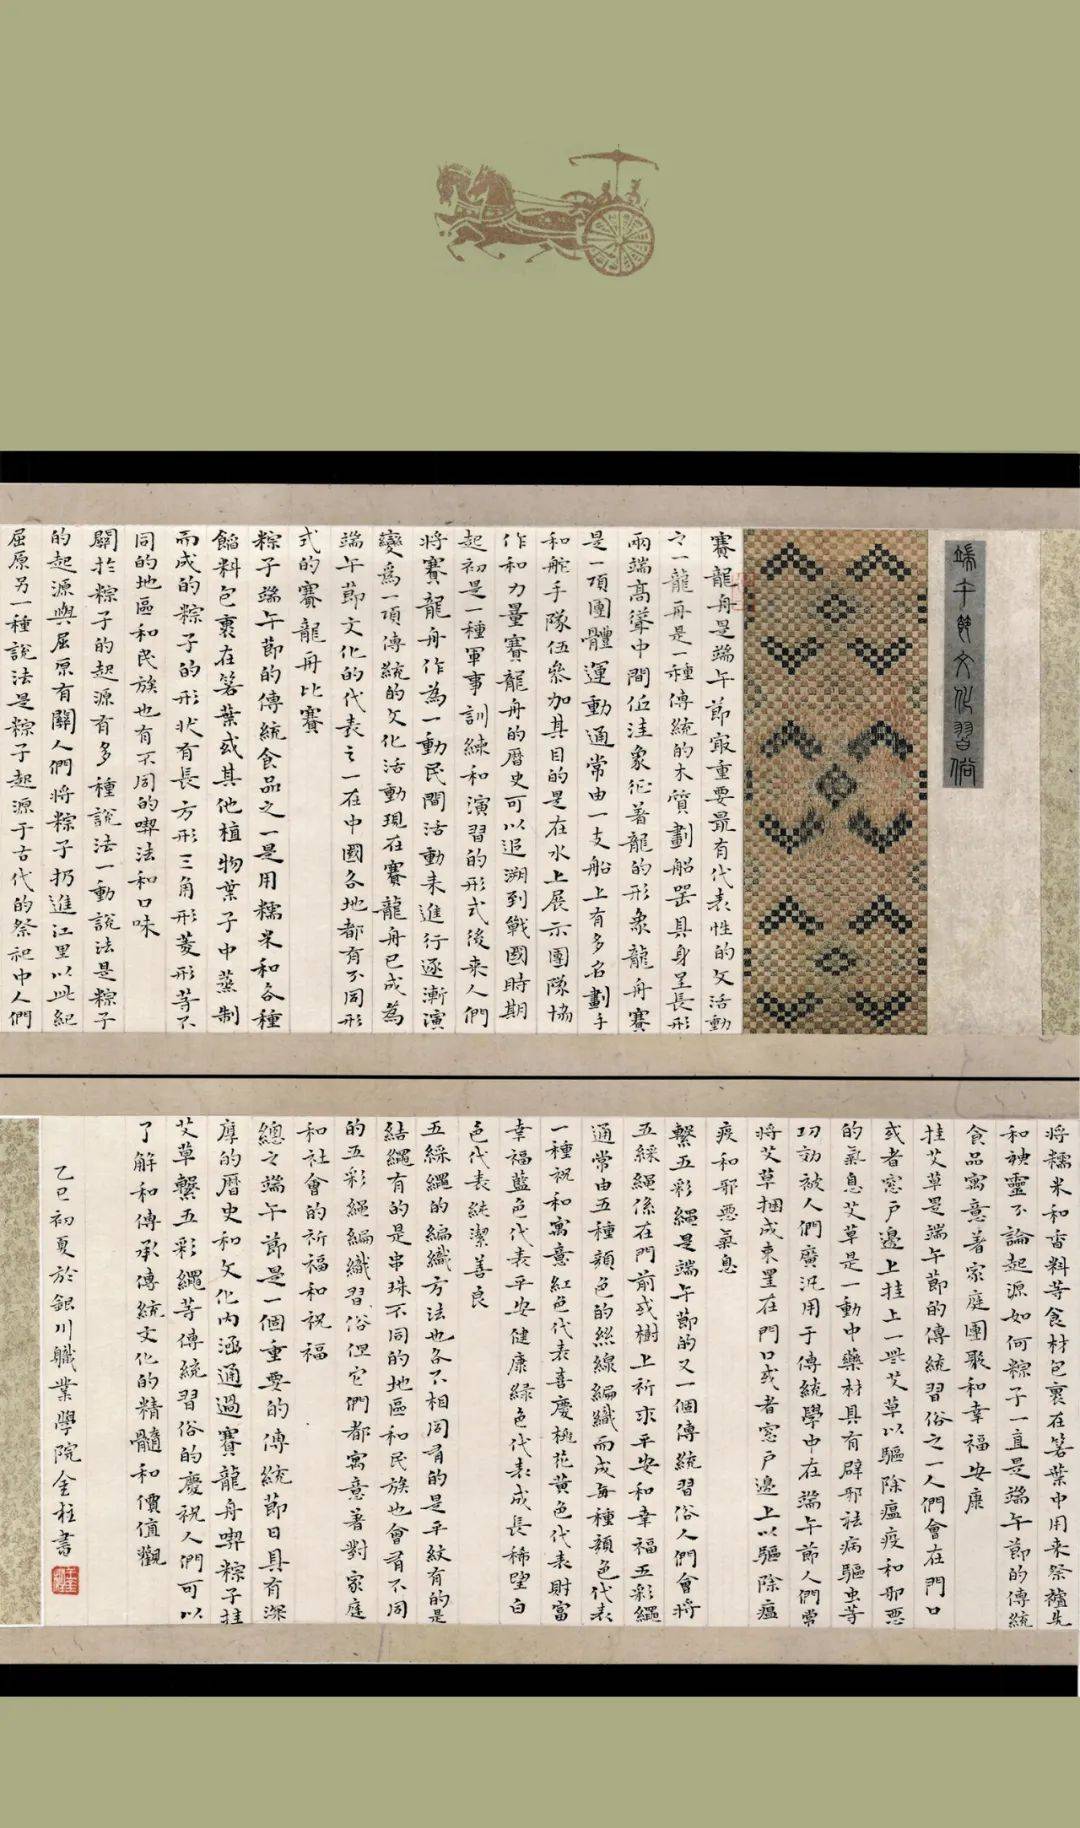 端午節文化習俗
賽龍舟是端午節㝡重要最有代表性的文活動
之一龍舟是一種傳統的木質劃船器具身呈長形
兩端高聳中間低洼象徵著龍的形象龍舟賽
是一項團體運動通常由一支船上有多名劃手
和舵手隊伍參加其目的是在水上展示團隊協
作和力量賽龍舟的曆史可以追溯到戰國時期
起初是一種軍事訓練和演習的形式後来人們
將賽龍舟作為一動民間活動来進行逐漸演
變為一項傳統的文化活動現在賽龍舟已成為
端午節文化的代表之一在中國各地都有不同形
式的賽龍舟比賽
粽子端午節的傳統食品之一是用糯米和各種
餡料包裹在箬葉或其他植物葉子中蒸制
而成的粽子的形状有長方形三角形菱形等不
同的地區和民族也有不同的喫法和口味
關於粽子的起源有多種說法一動說法是粽子
的起源與屈原有關人們將粽子扔進江里以此紀
屈原另一種說法是粽子起源于古代的祭祀中人們
將糯米和香料等食材包裹在箬葉中用来祭先
和神靈不論起源如何粽子一直是端午節的傳統
食品寓意著家庭團聚和幸福安康
挂艾草是端午節的傳統習俗之一人們會在門口
或者窓戶邊上挂上一些艾草以驅除瘟疫和邪惡
的氣息艾草是一動中藥材具有辟邪祛病驅虫等
功効被人們廣汎用于傳統學中在端午節人們常
將艾草捆成束置在門口或者窓戶邊上以驅除瘟
疫和邪惡氣息
繫五彩繩是端午節的又一個傳統習俗人們會將
五綵繩係在門前或樹上祈求平安和幸福五彩繩
通常由五種顏色的絲線編織而成每種顏色代表
一種祝和寓意紅色代表喜慶桃花黃色代表財富
幸福藍色代表平安健康緑色代表成長稀望白
色代表純潔善良
五綵繩的編織方法也各不相同有的是平紋有的是
結繩有的是串珠不同的地區和民族也會有不同
的五彩繩編織習俗但它們都寓意著對家庭
和社會的祈福和祝福
總之端午節是一個重要的傳統節日具有深
厚的曆史和文化内涵通過賽龍舟喫粽子挂
艾草繫五彩繩等傳統習俗的慶祝人們可以
了解和傳承傳統文化的精髓和價值觀
乙巳初夏於銀川職業學院金柱書